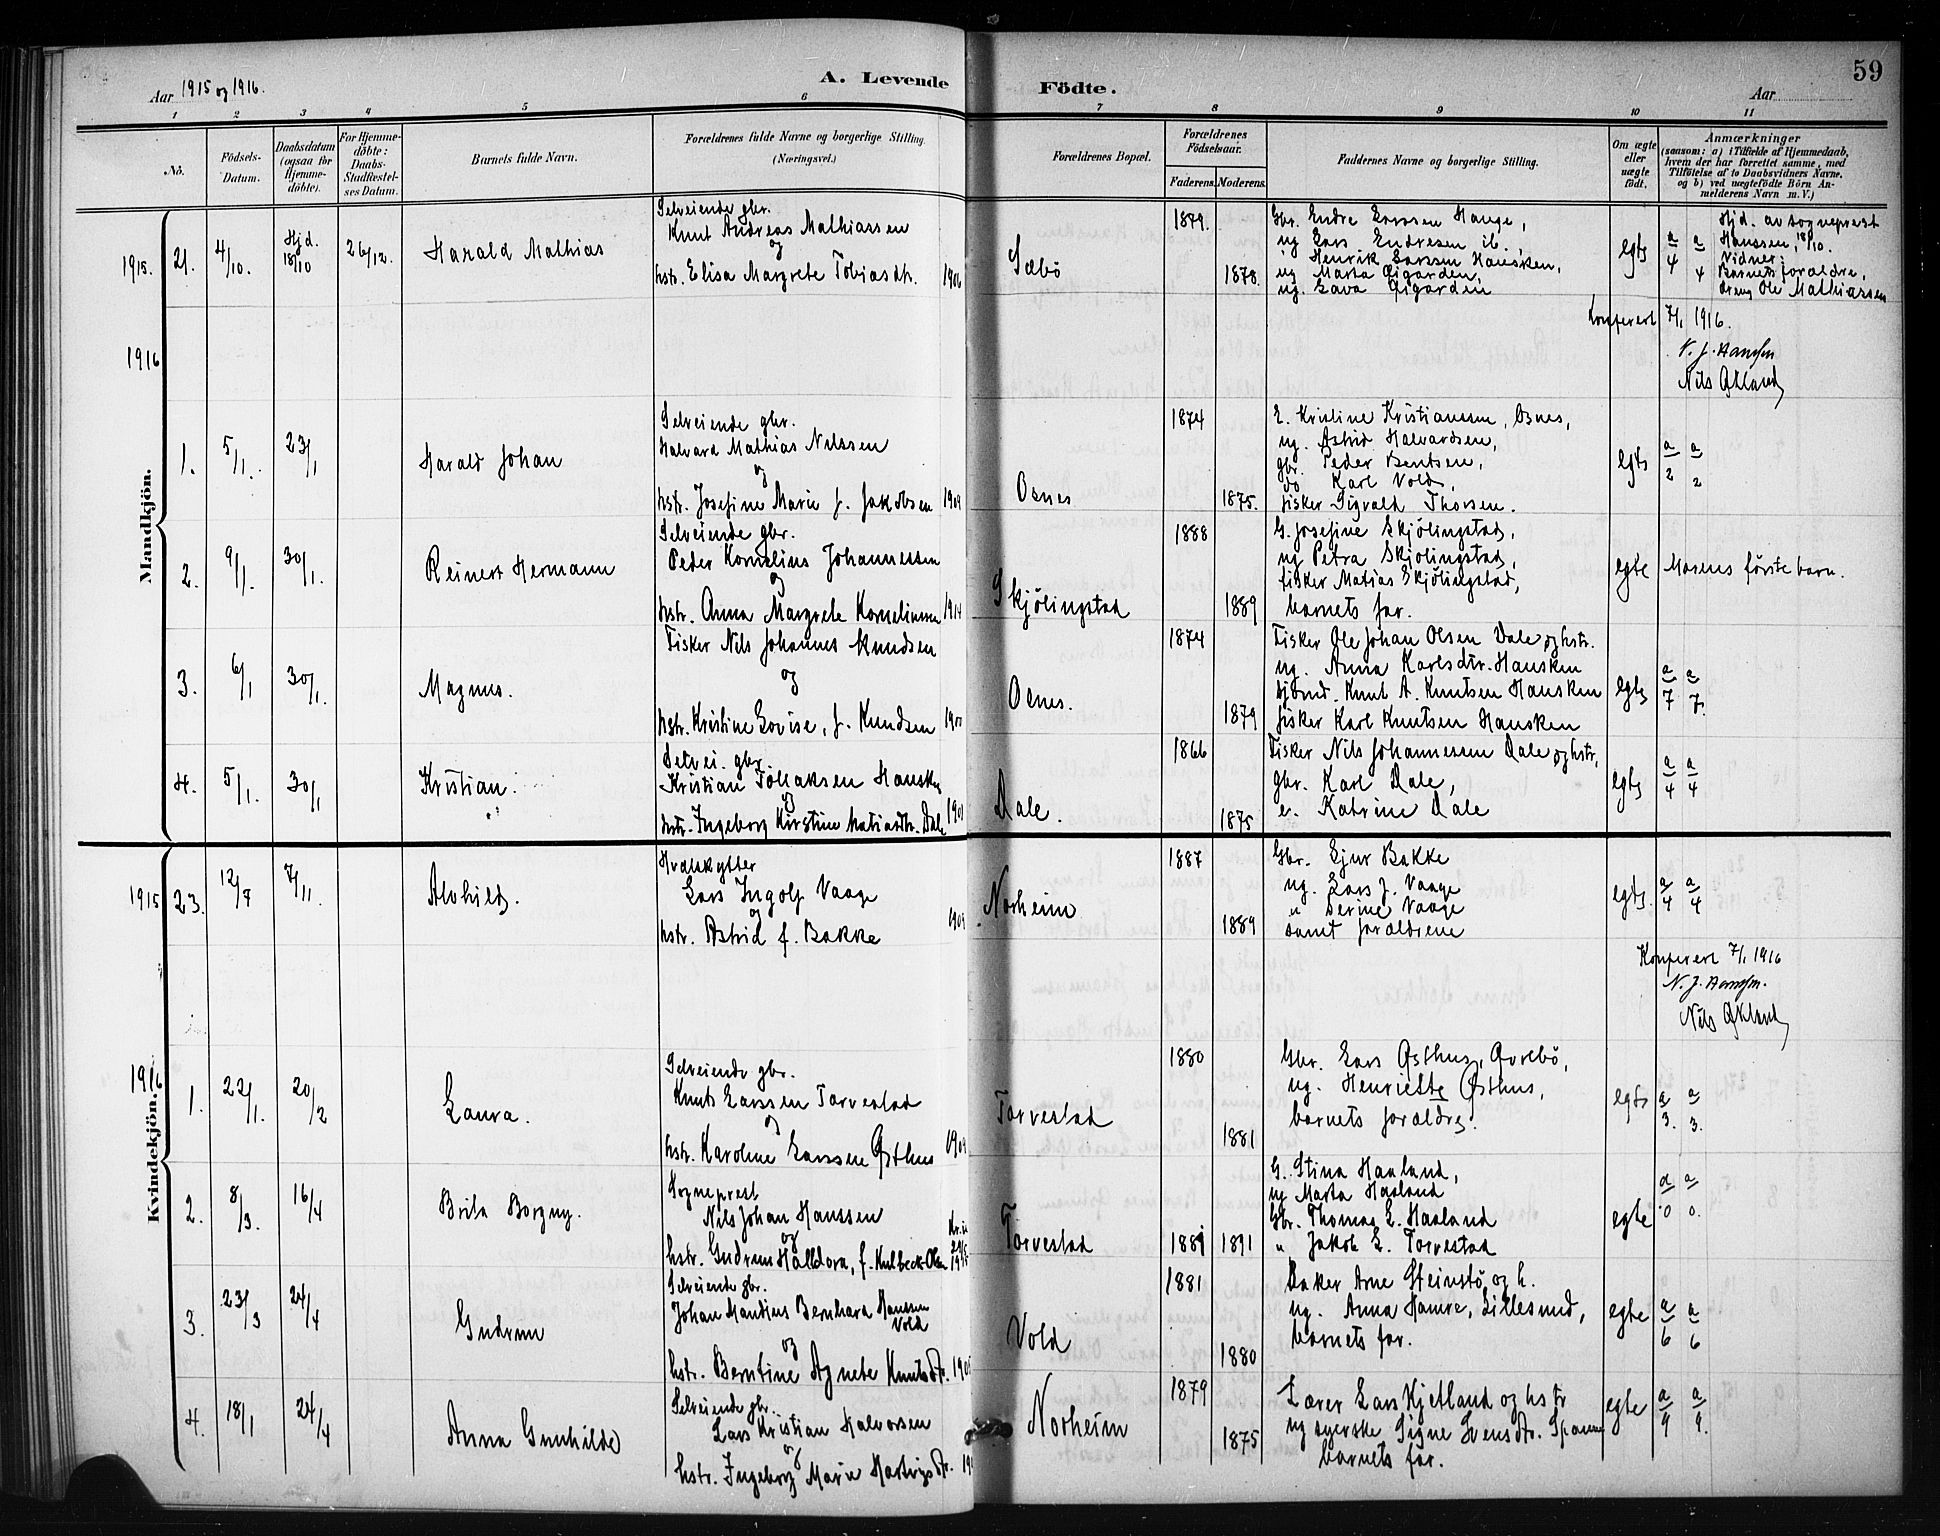 59
Aar 1915 og 1916.
A. Levende Födte.
Aar
1 2 3 4 5 6 7 8 9 10 11
No.
Födsels-Datum.
Daabsdatum (ogsaa for Hjemme-döbte).
For Hjemme-döbte: Daabs-Stadfæstel-ses Datum.
Barnets fulde Navn.
Forældrenes fulde Navne og borgerlige Stilling. (Næringsvei.)
Forældrenes Bopæl.
Forældrenes Födselsaar.
Faderens. Moderens.
Faddernes Navne og borgerlige Stilling.
Om ægte eller uægte födt.
Anmærkninger
(saasom: a) i Tilfælde af Hjemmedaab, hvem der har forrettet samme, med Tilföielse af to Daabsvidners Navne, og b) ved uægtefödte Börn An-melderens Navn m. V.)
Mandkjön.
1915. 21. 4/10. Hjd. 18/10 26/12. Harald Mathias
Selveiende gbr.
Knut Andreas Mathiassen
og
hstr. Elisa Margrete Tobiasdtr. 1906
Sæbö 1879. 1878.
Gbr. Endre Larssen Hauge,
ug Lars Endresen ib.,
Henrik Larssen Hausken,
ug Marta Eigarden,
ug. Lava Eigarden
egte a/4 a/4
Hjd. av sogneprest
Hanssen, 18/10.
Vidner:
Barnets foræLdre,
dreng Ole Mathiassen
Konferert 7/1 1916.
N. J. Hanssen
Nils Økland
1916
1. 5/1. 23/1 Harald Johan
Selveiende gbr.
Halvard Mathias Nilssen
og
hstr. Josefine Marie f. Jakobsen 1909
Osnes 1874 1875.
E. Kristine Kristianssen, Osnes,
ug. Astrid Halvardsen,
gbr. Peder Bentsen,
do Karl Vold,
fisker Sigvald Thorsen.
egte a/2 a/2
2. 9/1. 30/1. Reinert Hermann
Selveiende gbr.
Peder Kornelius Johannessen
og
hstr. Anna Margrete Korneliussen 1914
Skjölingstad 1888 1889
G. Josefine Skjölingstad,
ug Petra Skjölingstad,
fisker Matias Skjölingstad,
barnets far.
egte Morens förste barn.
3. 6/1 30/1. Magnus.
Fisker Nils Johannes Knudsen
og
hstr. Kristine Lovise, f. Knudsen
Osnes. 1874 1879
Fisker Ole Johan Olsen Dale og hstr.
ug. Anna Karlsdtr. Hausken
Knut A. Knutsen Hausken
fisker Karl Knutsen Hausken
egte a/7 a/7.
4. 5/1. 30/1 Kristian.
Selvei. gbr.
Kristian Tollaksen Hausken
og
hstr. Ingeborg Kirstine Matiasdtr. Dale 1901
Dale. 1866 1875
Fisker Nils Johannessen Dale og hstr,
gbr. Karl Dale,
e. Katrine Dale
egte a/4 a/4
Kvindekjön.
1915 23. 12/7 7/11. Alvhild.
Hvalskytter
Lars Ingolf Vaage
og
hstr. Astrid f. Bakke 1909
Norheim 1887 1889
Gbr. Sjur Bakke
ug. Lars J. Vaage
" Serine Vaage
samt forældrene
egte. a/4 a/4
Konferert 7/1 1916
N. J. Hanssen.
Nils Økland
1916
1. 22/1. 20/2 Laura.
Selveiende gbr.
Knut Larssen Torvestad
og
hstr. Karoline Larssen Østhus 1909
Torvestad 1880 1881
Gbr. Lars Østhus, Avrebö,
ug. Henriette Østhus,
barnets forældre.
egte a/3. a/3.
2. 8/3. 16/4 Brita Borgny.
Sogneprest
Nils Johan Hanssen
og
hstr. Gudrun Halldora, f. Kulbeck-Olsen
Torvestad 1889 1891
G. Stina Haaland,
ug Marta Haaland
Gbr. Thomas E. Haaland
" Jakob E. Torvestad
egte a/0 a/0.
3. 23/3 24/4 Gudrun
Selveiende gbr.
Johan Mandius Bernhard Hanssen
Vold
og
hstr. Berntine Agnete Knutsdtr.
Vold 1881 1880
Baker Arne Steinsbö og h.
ug. Anna Hamre, Lillesund,
barnets far.
egte a/6 a/6
4. 18/1 24/4 Anna Gunhilde
Selveiende gbr.
Lars Kristian Halvorsen
og
hstr. Ingeborg Marie Hartvigsdtr.
Norheim 1879 1875
Lærer Lars Kjetland og hstr
ug syerske Signe Svensdtr. Spanne
barnets far.
egte a/9 a/9.